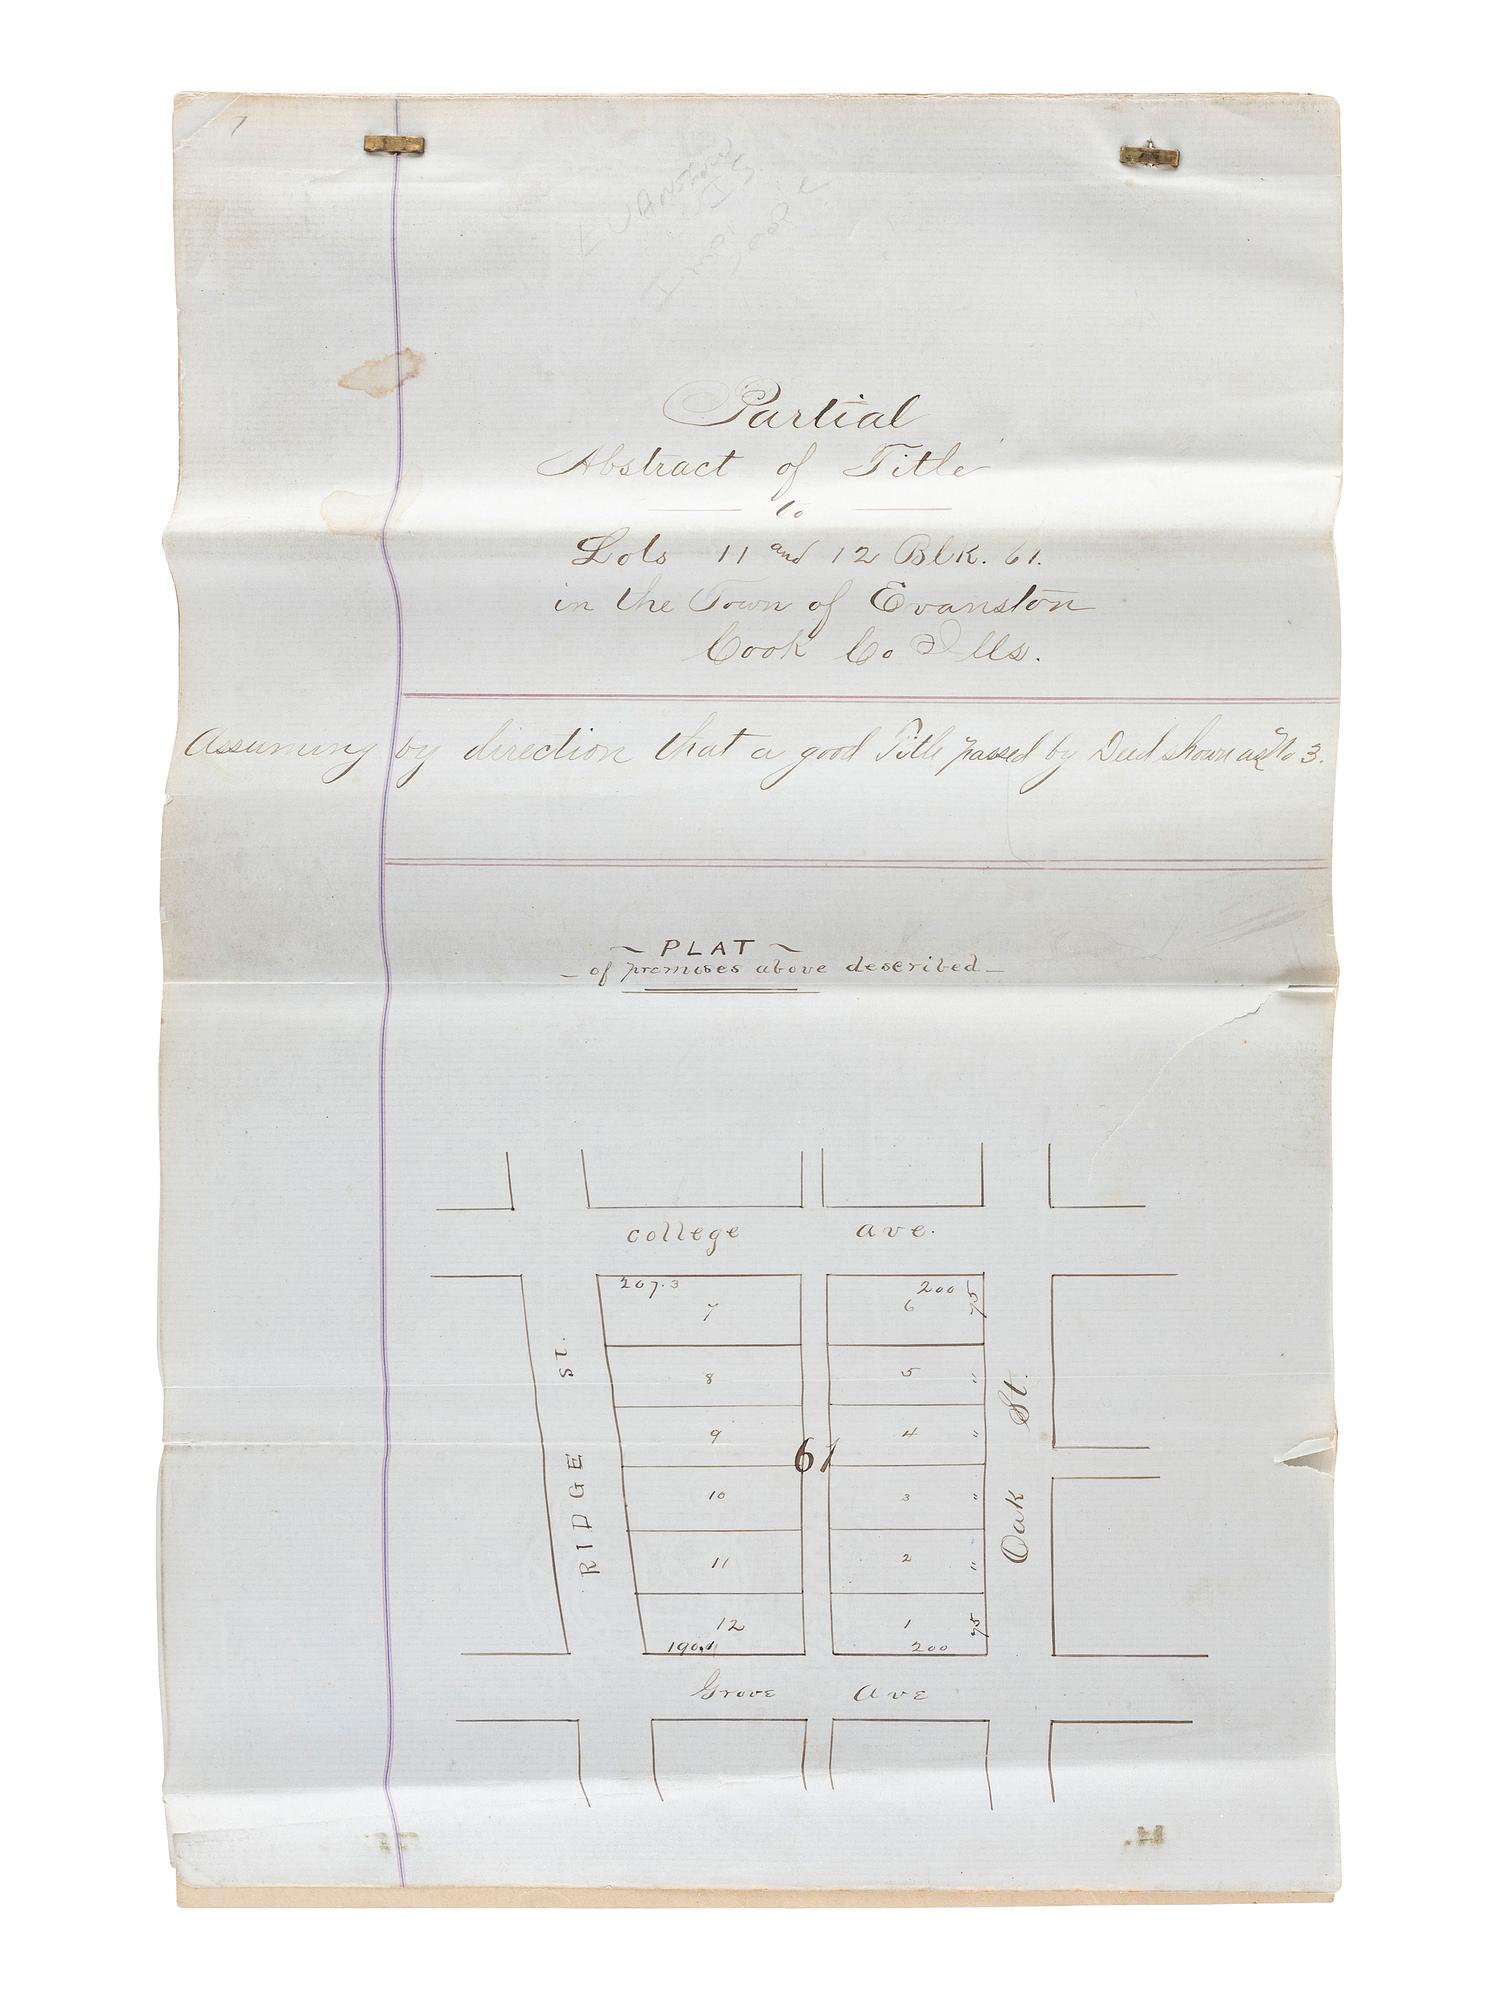 Partial
Abstract of Title
to
Lots 11 and 12 Blk. 61.
in the Town of Evanston
Cook Co Ills.
Assuming by direction that a good Title passed by Deed shown as No 3.
~ PLAT ~
— of premises above described —
college ave.
207.3
200
75
7
6
8
5
"
9
4
"
61
10
3
"
11
2
"
12
1
75
190.1
200
RIDGE St.
Oak St.
Grove Ave